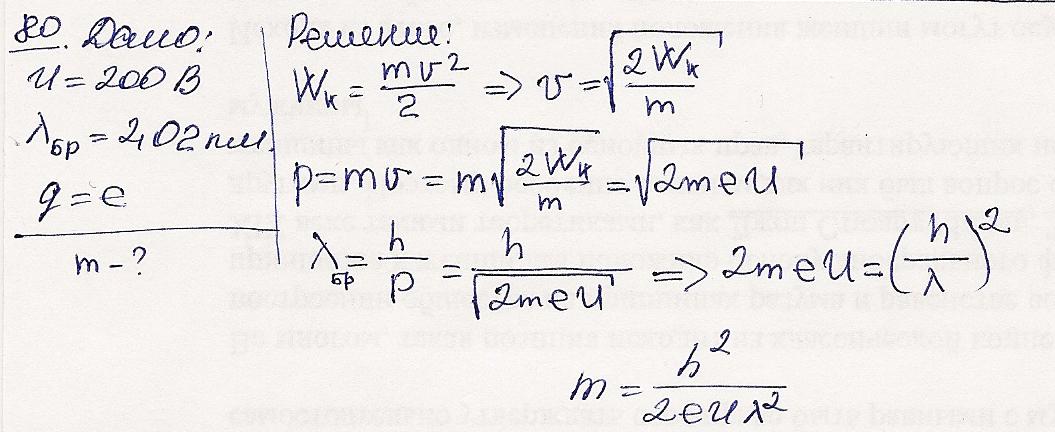 80. Дано:
U = 200 В
λбр = 2,02 пм.
q = e
m - ?
Решение:
Wк = mv²/2 => v = √(2Wк/m)
p = mv = m√(2Wк/m) = √(2meU)
λбр = h/p = h/√(2meU) => 2meU = (h/λ)²
m = h²/(2eUλ²)